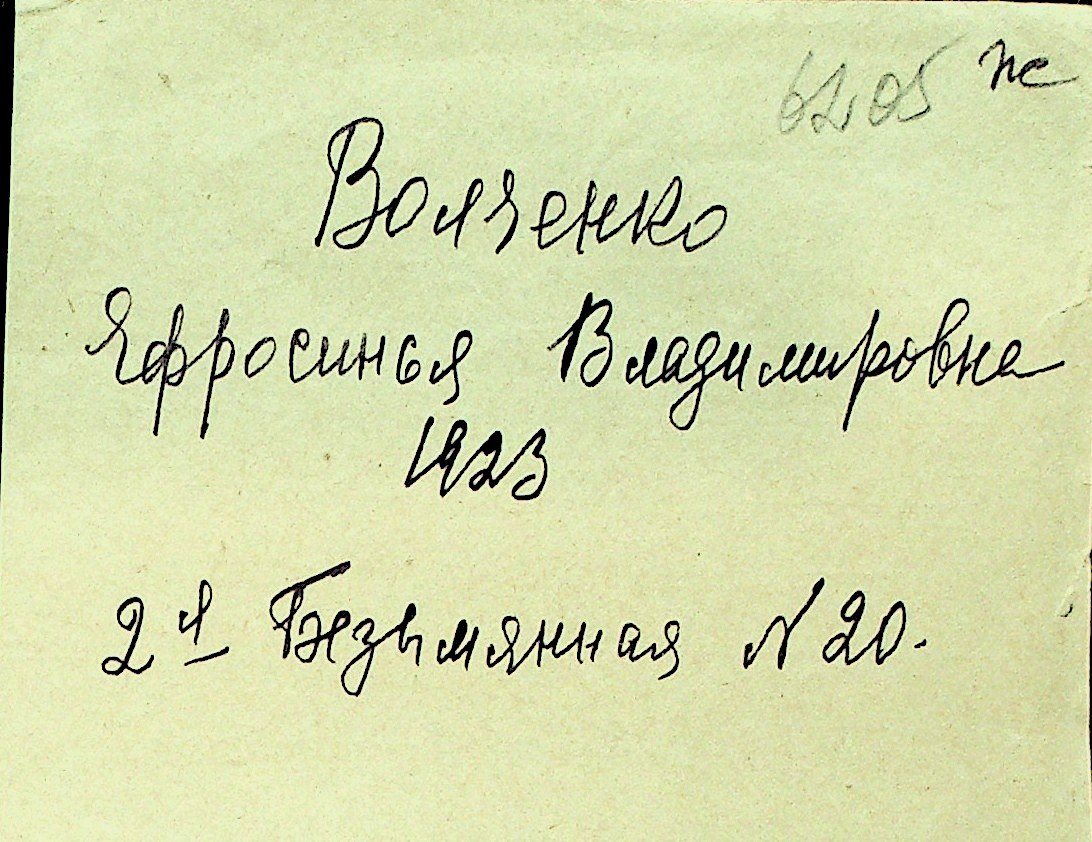 6205
Волченко
Яфросинья Владимировна
1923
2я Безымянная N 20.